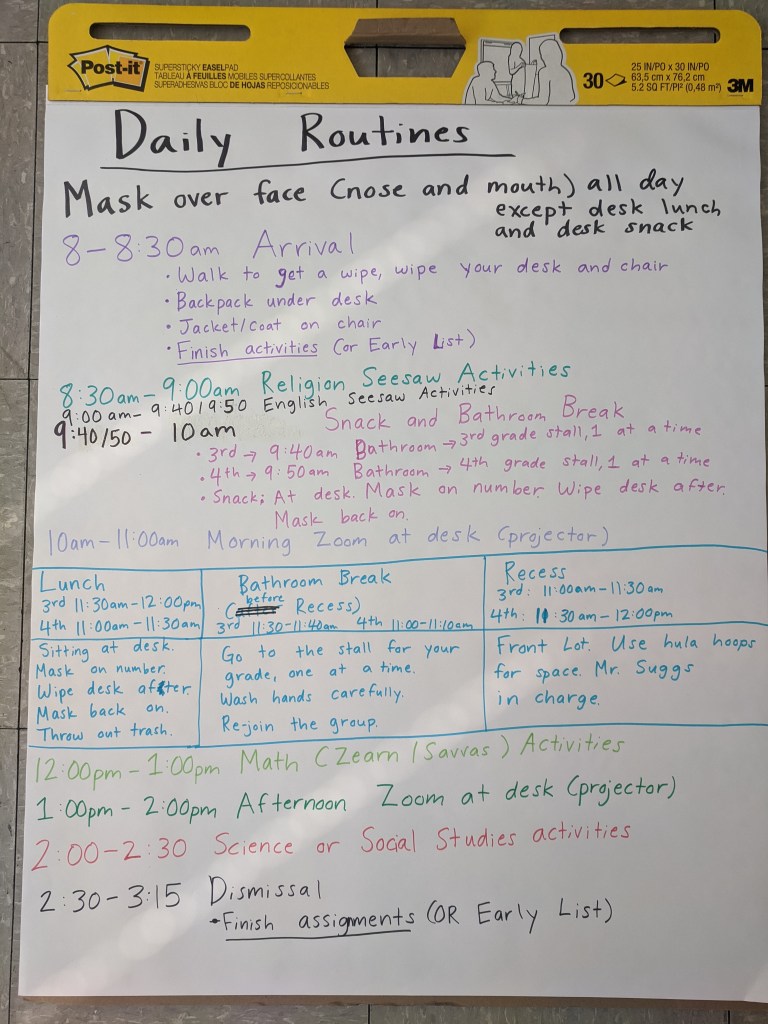 Post-it
SUPERSTICKY EASELPAD
TABLEAU À FEUILLES MOBILES SUPERCOLLANTES
SUPERADHESIVAS BLOC DE HOJAS REPOSICIONABLES
30
25 IN/PO x 30 IN/PO
63,5 cm x 76,2 cm
5.2 SQ FT/PI² (0,48 m²)
3M
Daily Routines
Mask over face (nose and mouth) all day
except desk lunch
and desk snack
8-8:30am Arrival
• Walk to get a wipe, wipe your desk and chair
• Backpack under desk
• Jacket/coat on chair
• Finish activities (or Early List)
8:30am - 9:00am Religion Seesaw Activities
9:00am - 9:40/9:50 English Seesaw Activities
9:40/50 - 10am Snack and Bathroom Break
• 3rd → 9:40am Bathroom → 3rd grade stall, 1 at a time
• 4th → 9:50am Bathroom → 4th grade stall, 1 at a time
• Snack: At desk. Mask on number. Wipe desk after.
Mask back on.
10am - 11:00am Morning Zoom at desk (projector)
Lunch
3rd 11:30am - 12:00pm
4th 11:00am - 11:30am
Bathroom Break
(before Recess)
3rd 11:30-11:40am 4th 11:00-11:10am
Recess
3rd: 11:00am - 11:30am
4th: 11:30am - 12:00pm
Sitting at desk.
Mask on number.
Wipe desk after.
Mask back on.
Throw out trash.
Go to the stall for your
grade, one at a time.
Wash hands carefully.
Re-join the group.
Front Lot. Use hula hoops
for space. Mr. Suggs
in charge.
12:00pm - 1:00pm Math (Zearn/Savvas) Activities
1:00pm - 2:00pm Afternoon Zoom at desk (projector)
2:00-2:30 Science or Social Studies activities
2:30-3:15 Dismissal
• Finish assignments (OR Early List)